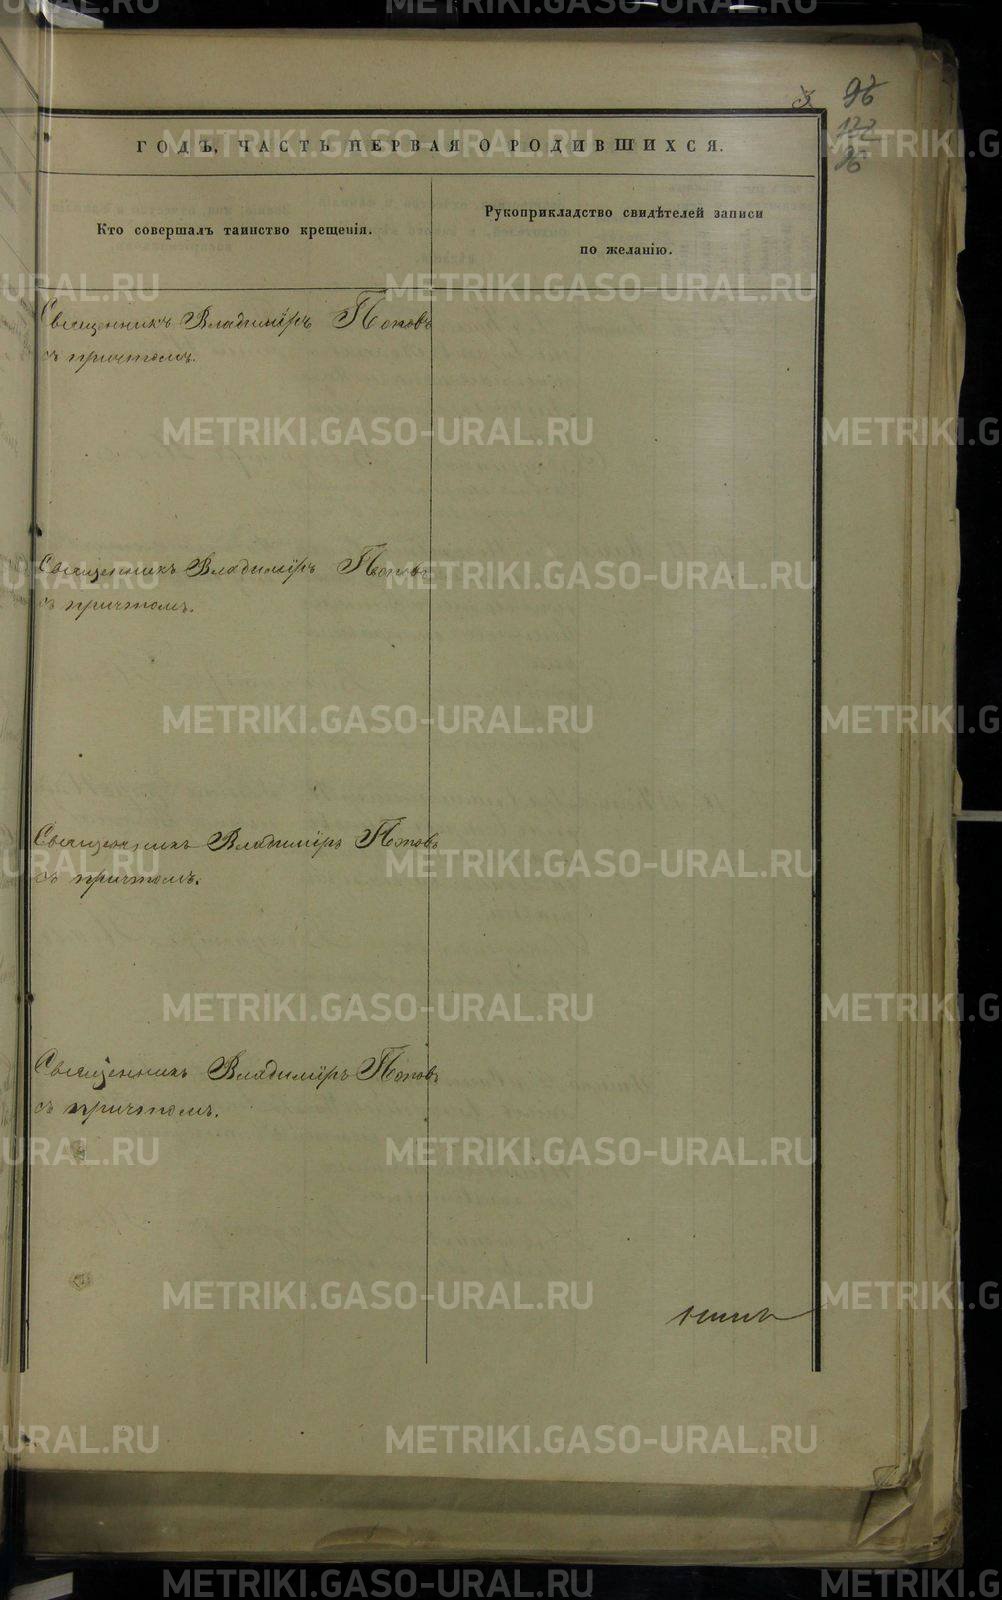 3 96
122
96
ГОДЪ, ЧАСТЬ ПЕРВАЯ О РОДИВШИХСЯ.
Кто совершалъ таинство крещенія.
Рукоприкладство свидѣтелей записи
по желанію.
Священникъ Владиміръ Поповъ
съ причтомъ.
Священникъ Владиміръ Поповъ
съ причтомъ.
Священникъ Владиміръ Поповъ
съ причтомъ.
Священникъ Владиміръ Поповъ
съ причтомъ.
METRIKI.GASO-URAL.RU